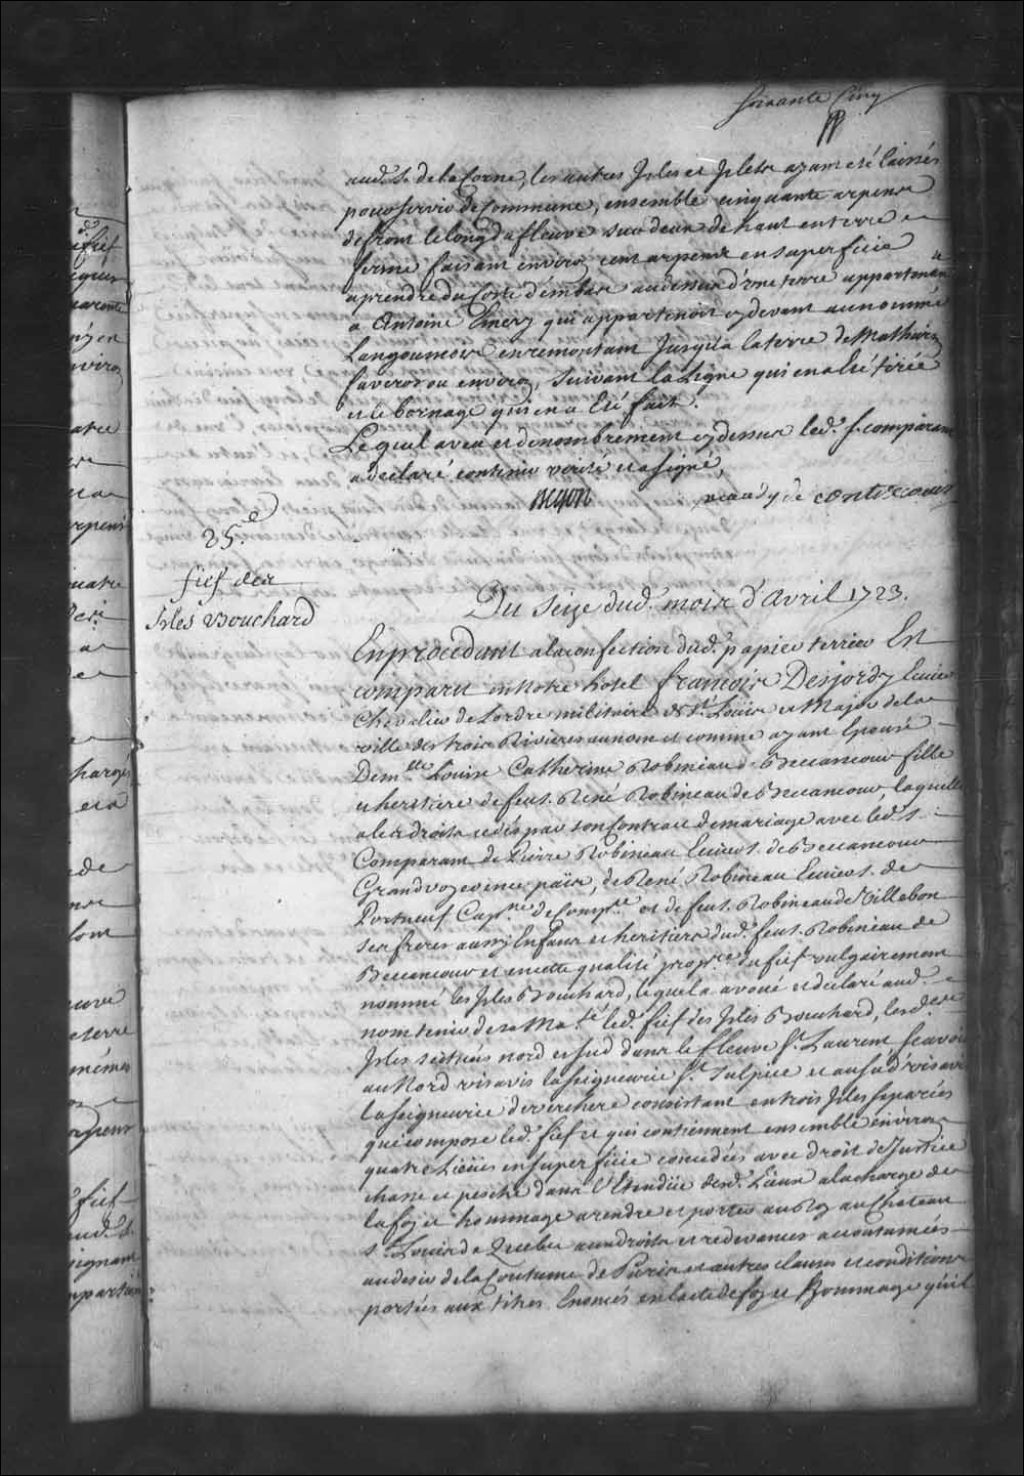 soixante Cinq
aud. S. de la Corne, les autres Isles et Islets ayant eté laissés
pour servir de Commune, ensemble cinquante arpens
de front le long du fleuve sur deux de haut en terre
ferme faisant environ cent arpens en superficie
a prendre du Costé d'embas au dessus d'une terre appartenant
a Antoine Emery qui appartenoit cy devant au nommé
Langoumois en remontant Jusqu'a la terre de Mathurin
faveron ou environ, suivant la Ligne qui en a Eté tirée
et le bornage qui en a Eté fait.
Lequel aveu et denombrement cy dessus led. s. comparant
a declaré contenir verité et a signé,
Begon
pecaudy de contrecoeur
25.e
fief des
Isles Bouchard
Du Seize dud. mois d'Avril 1723.
En procedant a la confection dud. papier terrier Est
comparu en Notre hotel françois Desjordy Ecuier
Chevalier de Lordre militaire de St. Louis et Major de la
ville des trois Rivieres au nom et comme ayant Epousé
Dem.elle Louise Catherine Robineau de Beccancour fille
et heritiere de feu s. René Robineau de Beccancour laquelle
a les droits cedés par son Contract de mariage avec led. s.
Comparant de Pierre Robineau Ecuier s. de Beccancour
Grand voyer en ce païs, de René Robineau Ecuier s. de
Portneuf Cap.ne de Comp.ie et de feu s. Robineau de Villebon
ses freres aussy Enfans et heritiers dud. feu s. Robineau de
Beccancour et en cette qualité prop.re du fief vulgairement
nommé les Isles Bouchard, lequel a avoué et declaré aud.
nom tenir de sa Ma.té led. fief des Isles Bouchard, lesd.
Isles scituées nord et sud dans le fleuve St. Laurent scavoir
au Nord vis avis la seigneurie St. Sulpice et au sud vis avis
la seigneurie de vercheres consistant en trois Isles separées
qui compose led. fief et qui contiennent ensemble environ
quatre Lieües en superficie concedées avec droit de Justice
chasse et pesche dans l'Etendüe desd. Lieux a la charge de
la foy et hommage a rendre et porter au Roy au Chateau
St. Louis de Quebec aux droits et redevances accoutumées
au desir de la Coutume de Paris et autres clauses et conditions
portées aux titres Enoncés en l'acte de foy et Hommage qu'il